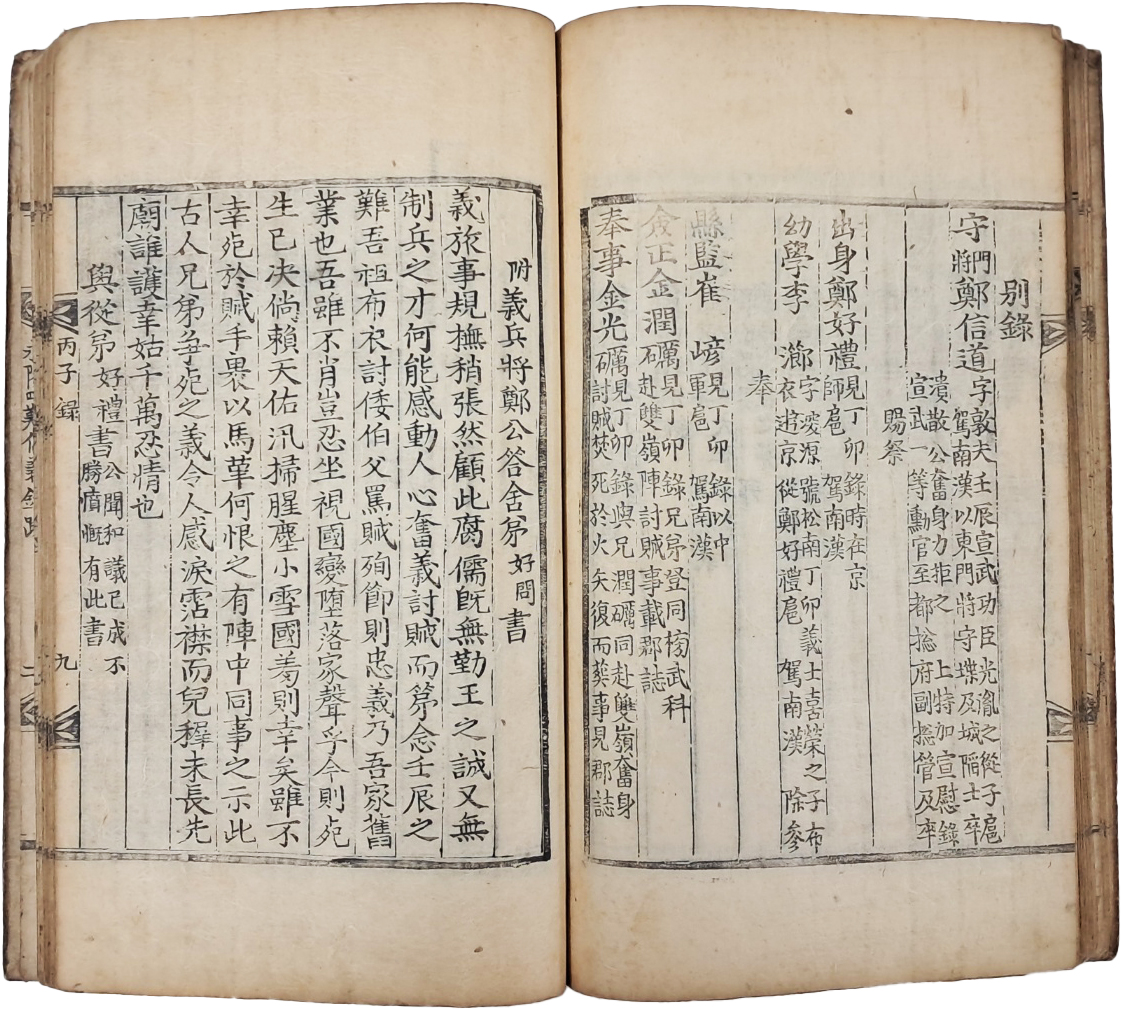 別錄
守門將鄭信道字敦夫壬辰宣武功臣光胤之從子扈
駕南漢以東門將守堞及城陷士卒
潰散公奮身力拒之 上特加宣慰錄
宣武一等勳官至都捴府副捴管及卒
賜祭
出身鄭好禮見丁卯錄時在京
師扈 駕南漢
幼學李 瀞字浚源號松南丁卯義士喜榮之子布
衣逰京從鄭好禮扈 駕南漢 除參
奉
縣監崔 峠見丁卯錄以中
軍扈 駕南漢
僉正金潤礪見丁卯錄兄弟登同榜武科
赴雙嶺陣討賊事載郡誌
奉事金光礪見丁卯錄與兄潤礪同赴雙嶺奮身
討賊焚死於火矢復而葬事見郡誌
附義兵將鄭公答舍弟好問書
義旅事規橅稍張然顧此腐儒旣無勤王之誠又無
制兵之才何能感動人心奮義討賊而第念壬辰之
難吾祖布衣討倭伯父罵賊殉節則忠義乃吾家舊
業也吾雖不肖豈忍坐視國變墮落家聲乎今則死
生已决倘賴天佑汛掃腥塵小雪國羞則幸矣雖不
幸死於賊手裹以馬革何恨之有陣中同事之示此
古人兄弟爭死之義令人感淚霑襟而兒穉未長先
廟誰護幸姑千萬忍情也
與從弟好禮書公聞和議已成不
勝憤慨有此書
丙子錄
九